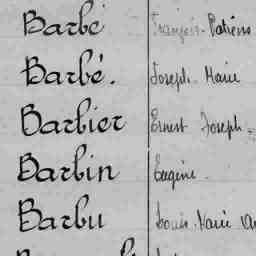 Barbé François-Patiens
Barbé. Joseph. Marie
Barbier Ernest Joseph.
Barbin Eugène.
Barbu Louis. Marie